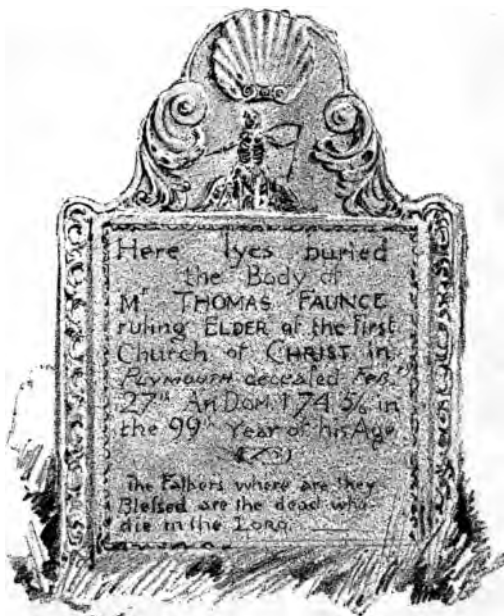 Here lyes buried
the Body of
Mr THOMAS FAUNCE
ruling ELDER of the First
Church of CHRIST in
PLYMOUTH deceased FEB.ry
27th An.DOM. 174 5/6 in
the 99th Year of his Age
The Fathers where are they
Blessed are the dead who
die in the LORD.